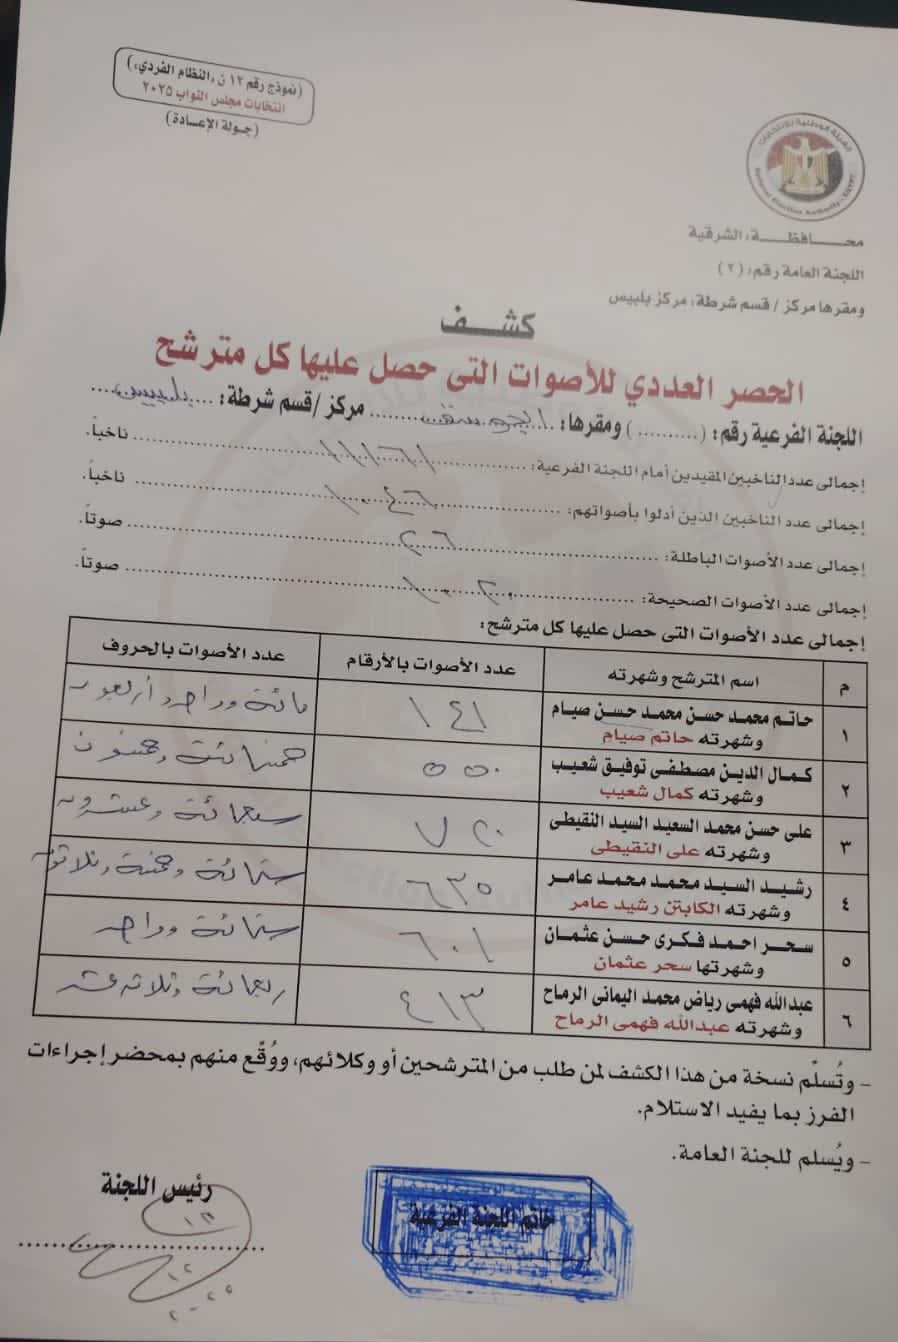 (نموذج رقم ١٢ ن «النظام الفردي»)
انتخابات مجلس النواب ٢٠٢٥
(جـولة الإعـادة)
الهيئة الوطنية للانتخابات
National Election Authority - EGYPT
محـــافظـــة: الشرقية
اللجنة العامة رقم: (٢)
ومقرها مركز / قسم شرطة: مركز بلبيس
كشــف
الحصر العددي للأصوات التى حصل عليها كل مترشح
اللجنة الفرعية رقم: (..........) ومقرها: ........ مركز /قسم شرطة: ....بلبيس....
إجمالى عدد الناخبين المقيدين أمام اللجنة الفرعية: ........ ناخباً.
إجمالى عدد الناخبين الذين أدلوا بأصواتهم: ........ ناخباً.
إجمالى عدد الأصوات الباطلة: ........٢٦........ صوتاً.
إجمالى عدد الأصوات الصحيحة: ........ صوتاً.
إجمالى عدد الأصوات التى حصل عليها كل مترشح:
م اسم المترشح وشهرته عدد الأصوات بالأرقام عدد الأصوات بالحروف
١ حاتم محمد حسن محمد حسن صيام ١٤١ مائة وواحد وأربعون
وشهرته حاتم صيام
٢ كمال الدين مصطفى توفيق شعيب ٥٥٠ خمسمائة وخمسون
وشهرته كمال شعيب
٣ على حسن محمد السعيد السيد النقيطى ٧٢٠ سبعمائة وعشرون
وشهرته على النقيطى
٤ رشيد السيد محمد محمد عامر ٦٣٥ ستمائة وخمسة وثلاثون
وشهرته الكابتن رشيد عامر
٥ سحر احمد فكرى حسن عثمان ٦٠١ ستمائة وواحد
وشهرتها سحر عثمان
٦ عبدالله فهمى رياض محمد اليمانى الرماح ٤١٣ ربعمائة وثلاثة عشر
وشهرته عبدالله فهمى الرماح
- وتُسلّم نسخة من هذا الكشف لمن طلب من المترشحين أو وكلائهم، ووُقّع منهم بمحضر إجراءات
الفرز بما يفيد الاستلام.
- ويُسلم للجنة العامة.
رئيس اللجنة
خاتم اللجنة الفرعية